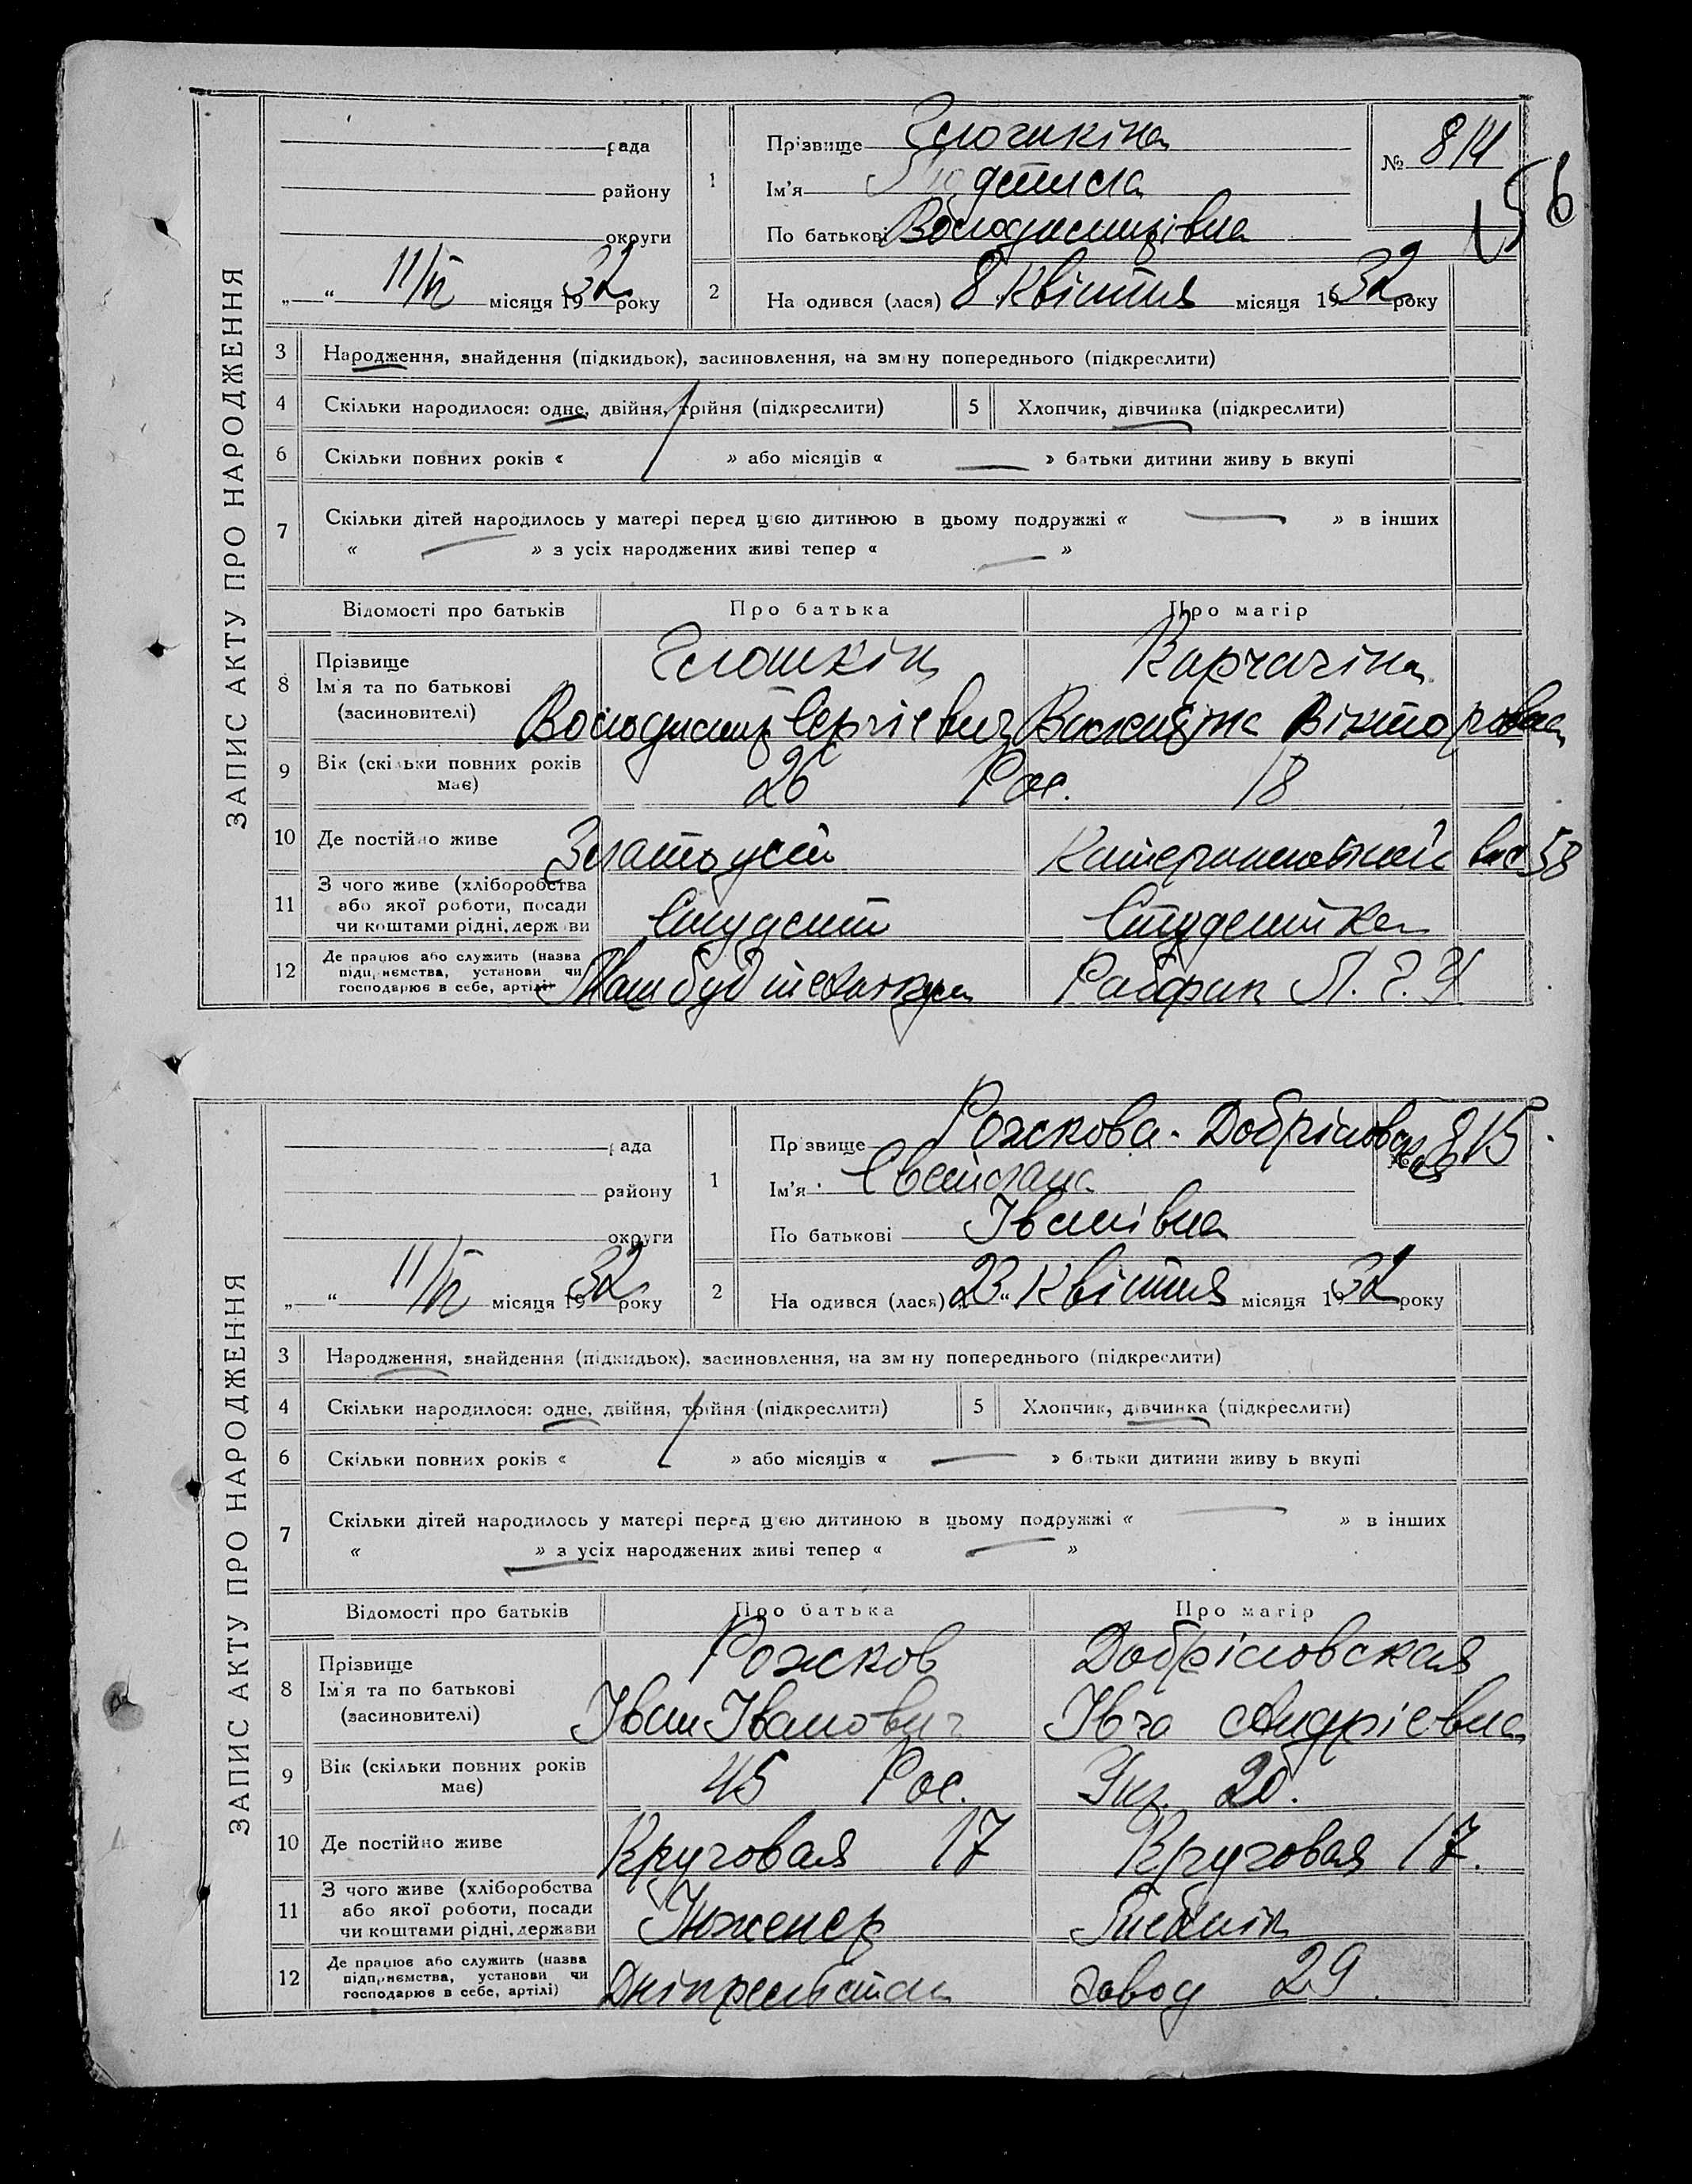 ЗАПИС АКТУ ПРО НАРОДЖЕННЯ
рада
району
округи
„ “ 11/IV місяця 1932 року
1
Прізвище
Ім'я Людмила
По батькові Володимирівна
№ 814
156
2
Народився (лася) 8 Квітня місяця 1932 року
3 Народження, знайдення (підкидьок), засиновлення, на зміну попереднього (підкреслити)
4 Скільки народилося: одне, двійня, трійня (підкреслити)
5 Хлопчик, дівчинка (підкреслити)
6 Скільки повних років « » або місяців « — » батьки дитини живуть вкупі
7 Скільки дітей народилось у матері перед цією дитиною в цьому подружжі « — » в інших
« — » з усіх народжених живі тепер « — »
Відомості про батьків Про батька Про матір
8 Прізвище
Ім'я та по батькові
(засиновителі)
Володимир Сергієвич
Карчагіна
Валентина Вікторовна
9 Вік (скільки повних років має) 26 Рос. 18
10 Де постійно живе Златоуст 58
11 З чого живе (хліборобства
або якої роботи, посади
чи коштами рідні, держави
Студент Студентка
12 Де працює або служить (назва
підприємства, установи чи
господарює в себе, артілі)
Рабфак
ЗАПИС АКТУ ПРО НАРОДЖЕННЯ
рада
району
округи
„ “ 11/IV місяця 1932 року
1
Прізвище Рожкова-Добріловская
Ім'я Светлана
По батькові Іванівна
№ 815
2
Народився (лася) 23 “ Квітня місяця 1932 року
3 Народження, знайдення (підкидьок), засиновлення, на зміну попереднього (підкреслити)
4 Скільки народилося: одне, двійня, трійня (підкреслити)
5 Хлопчик, дівчинка (підкреслити)
6 Скільки повних років « » або місяців « — » батьки дитини живуть вкупі
7 Скільки дітей народилось у матері перед цією дитиною в цьому подружжі « — » в інших
« — » з усіх народжених живі тепер « — »
Відомості про батьків Про батька Про матір
8 Прізвище
Ім'я та по батькові
(засиновителі)
Рожков
Іван Іванович
Добріловская
Івга Андрієвна
9 Вік (скільки повних років має) 45 Рос. Укр. 20.
10 Де постійно живе Круговая 17 Круговая 17.
11 З чого живе (хліборобства
або якої роботи, посади
чи коштами рідні, держави
Інженер
12 Де працює або служить (назва
підприємства, установи чи
господарює в себе, артілі)
завод 29.